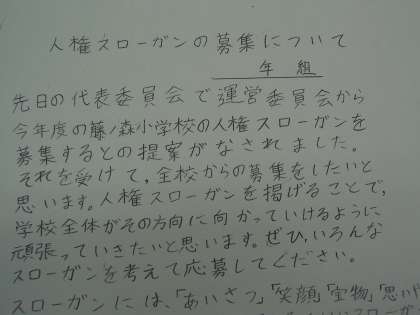 人権スローガンの募集について
年 組
先日の代表委員会で運営委員会から
今年度の藤ノ森小学校の人権スローガンを
募集するとの提案がなされました。
それを受けて、全校からの募集をしたいと
思います。人権スローガンを掲げることで、
学校全体がその方向に向かっていけるように
頑張っていきたいと思います。ぜひ、いろんな
スローガンを考えて応募してください。
スローガンには、「あいさつ」「笑顔」「宝物」「思いや